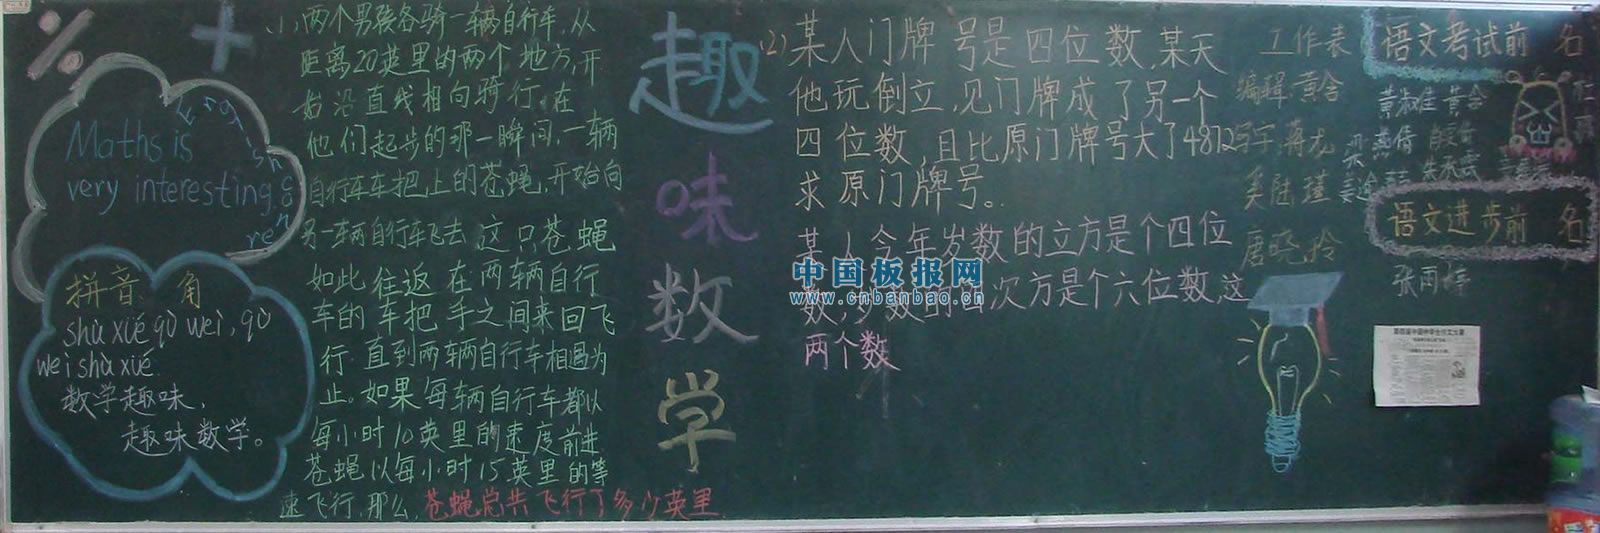 Maths is
very interesting.
English corner
拼音 角
shù xué qù wèi, qù
wèi shù xué.
数学趣味,
趣味数学。
(1)、两个男孩各骑一辆自行车,从
距离20英里的两个地方,开
始沿直线相向骑行。在
他们起步的那一瞬间,一辆
自行车车把上的苍蝇,开始向
另一车辆自行车飞去 这只苍蝇
如此往返在两辆自行
车的车把手之间来回飞
行,直到两辆自行车相遇为
止。如果每辆自行车都以
每小时10英里的速度前进
苍蝇以每小时15英里的等
速飞行,那么,苍蝇总共飞行了多少英里
趣味数学
(2)某人门牌号是四位数,某天
他玩倒立,见门牌成了另一个
四位数,且比原门牌号大了4872
求原门牌号。
某人今年岁数的立方是个四位
数,岁数的四次方是个六位数,这
两个数
中国板报网
www.cnbanbao.cn
工作表
编辑:黄含
写字:蒋龙
唐晓玲
语文考试前 名
黄淑佳 黄含
语文进步前 名
张雨婷